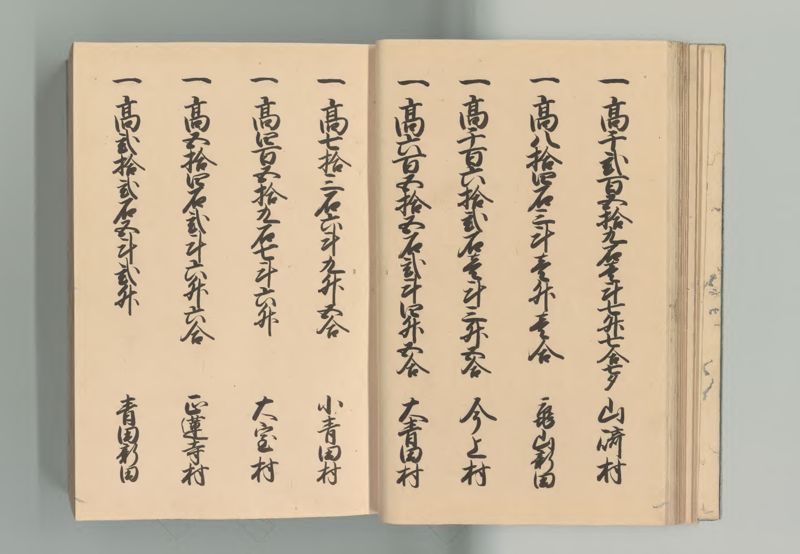 一高千弐百五拾九石壱斗七升七合七夕 山崎村
一高八拾四石三斗壱升壱合 亀山新田
一高千百六拾弐石壱斗三升五合 今上村
一高六百五拾五石弐斗四升五合 大青田村
一高七拾三石六斗九升五合 小青田村
一高四百五拾九石七斗六升 大室村
一高五拾四石弐斗六升六合 正蓮寺村
一高弐拾弐石五斗弐升 青田新田